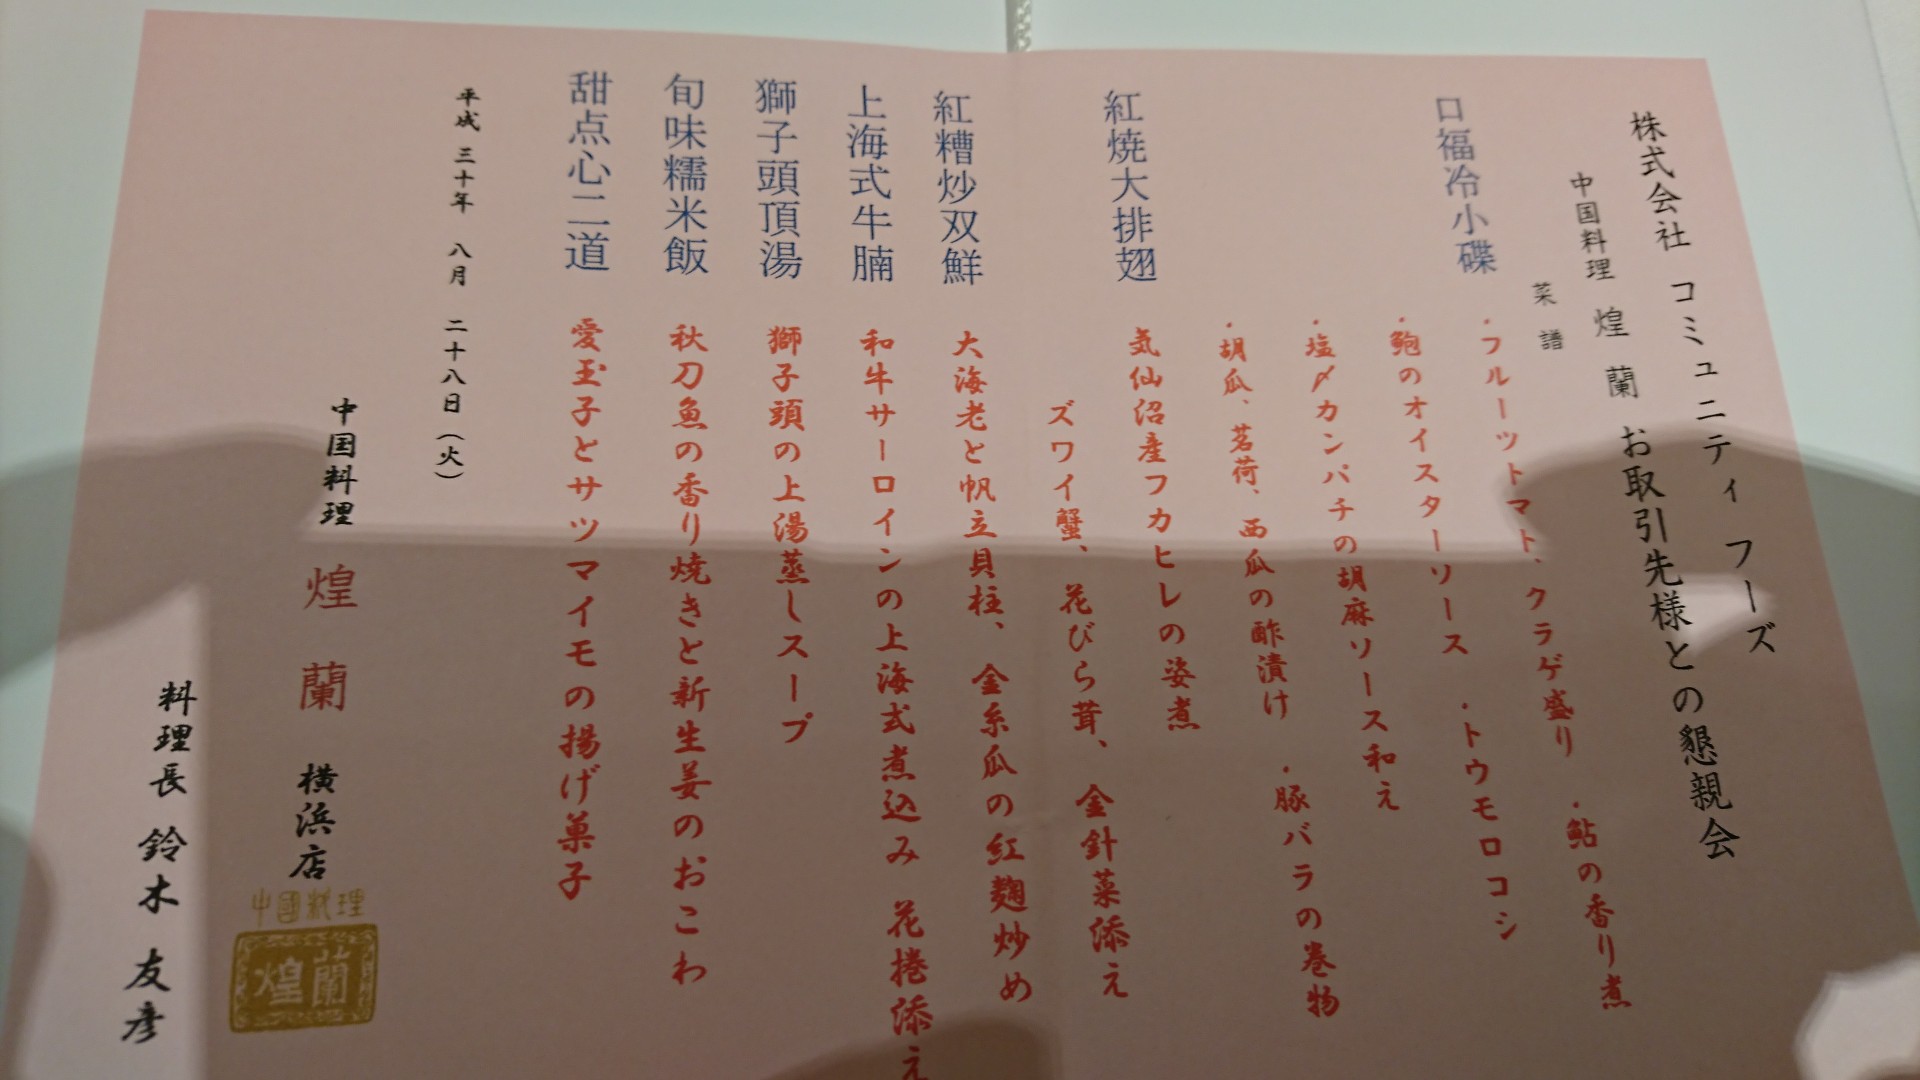 株式会社 コミュニティ フーズ
中国料理 煌蘭 お取引先様との懇親会
菜譜
口福冷小碟
・フルーツトマト、クラゲ盛り ・鮎の香り煮
・鮑のオイスターソース ・トウモロコシ
・塩〆カンパチの胡麻ソース和え
・胡瓜、茗荷、西瓜の酢漬け ・豚バラの巻物
紅焼大排翅 気仙沼産フカヒレの姿煮
ズワイ蟹、花びら茸、金針菜添え
紅糟炒双鮮 大海老と帆立貝柱、金糸瓜の紅麹炒め
上海式牛腩 和牛サーロインの上海式煮込み 花捲添え
獅子頭頂湯 獅子頭の上湯蒸しスープ
旬味糯米飯 秋刀魚の香り焼きと新生姜のおこわ
甜点心二道 愛玉子とサツマイモの揚げ菓子
平成 三十年 八月 二十八日（火）
中国料理 煌蘭 横浜店
中國料理
煌蘭
料理長 鈴木 友彦